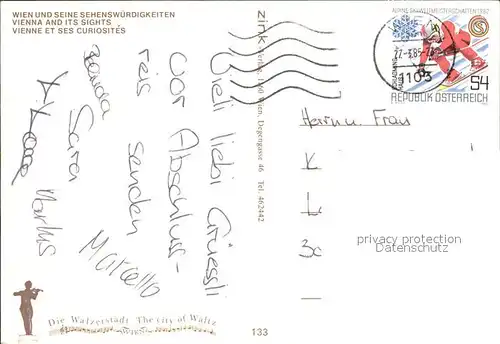 WIEN UND SEINE SEHENSWÜRDIGKEITEN
VIENNA AND ITS SIGHTS
VIENNE ET SES CURIOSITÉS
Vieli liebi Grüessli
vor Abschluss-
reis
senden
Marcello
Sara
Markus
Die Walzerstadt The city of Waltz
WIEN
zink Verlag, 1160 Wien, Degengasse 46 Tel. 462442
133
ALPINE SKI-WELTMEISTERSCHAFTEN 1982
S4
REPUBLIK ÖSTERREICH
1103
Herrn u. Frau
K
L
3c
privacy protection
Datenschutz